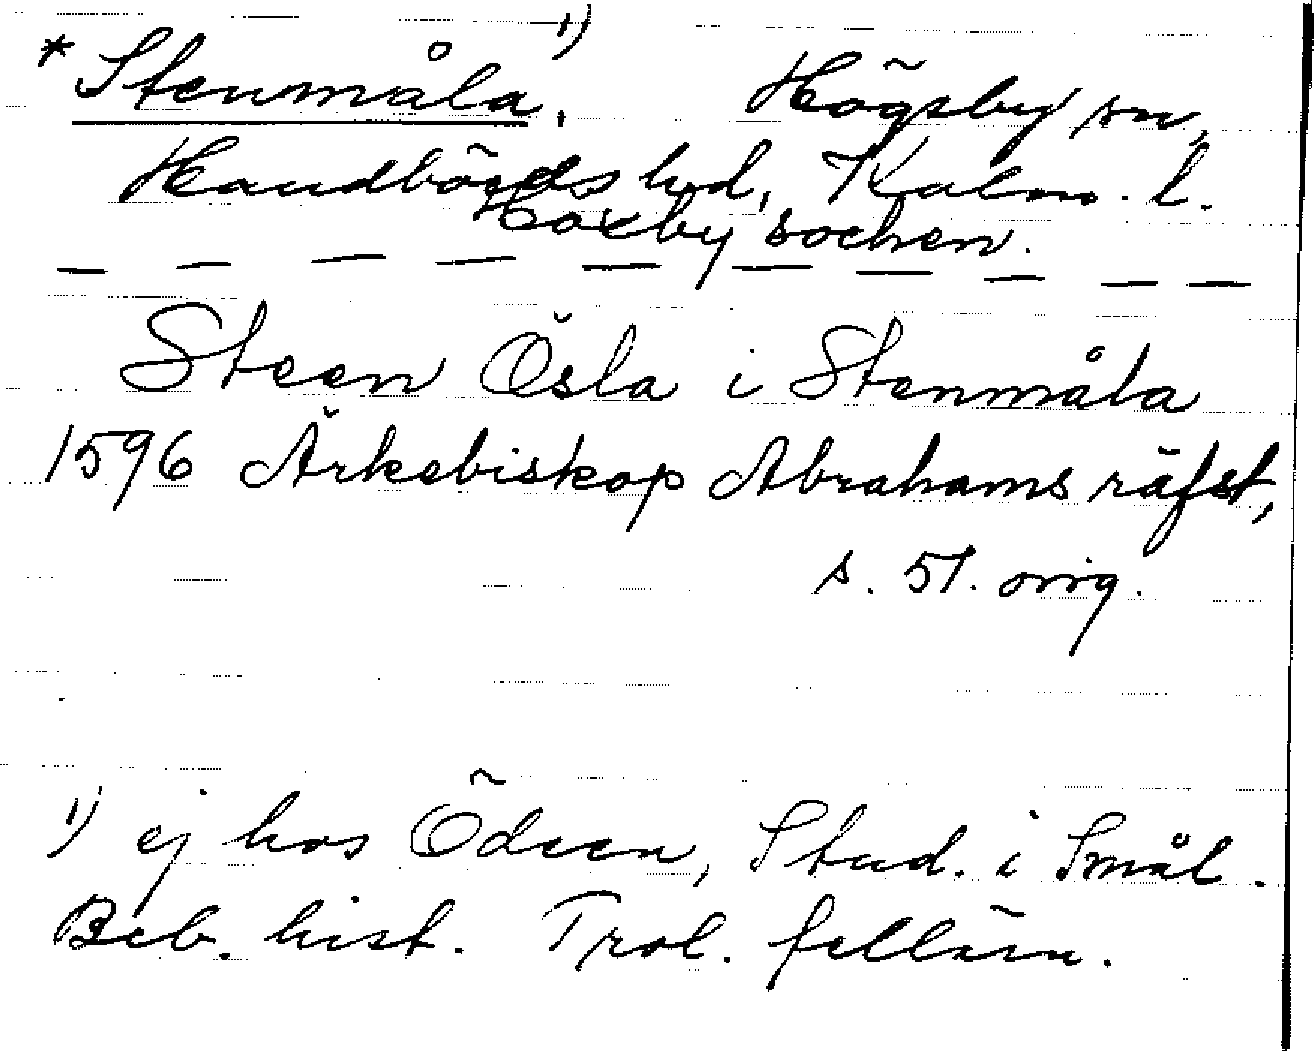 * Stenmåla 1), Högsby sn,
Handbörds hd, Kalm. l.
Hoxby sochen.
— — — — — — — — — —
Steen Ösla i Stenmåla
1596 Ärkebiskop Abrahams räfst,
s. 51. orig.
1) ej hos Ödeen, Stud. i Smål.
Beb. hist. Trol. felläsn.